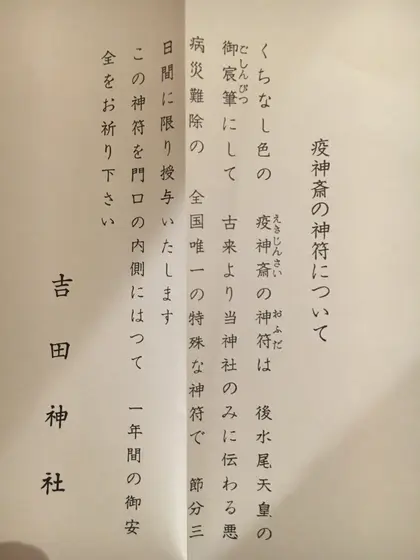 疫神斎の神符について
くちなし色の 疫神斎の神符は 後水尾天皇の
御宸筆にして 古来より当神社のみに伝わる悪
病災難除の 全国唯一の特殊な神符で 節分三
日間に限り授与いたします
この神符を門口の内側にはつて 一年間の御安
全をお祈り下さい
吉田神社